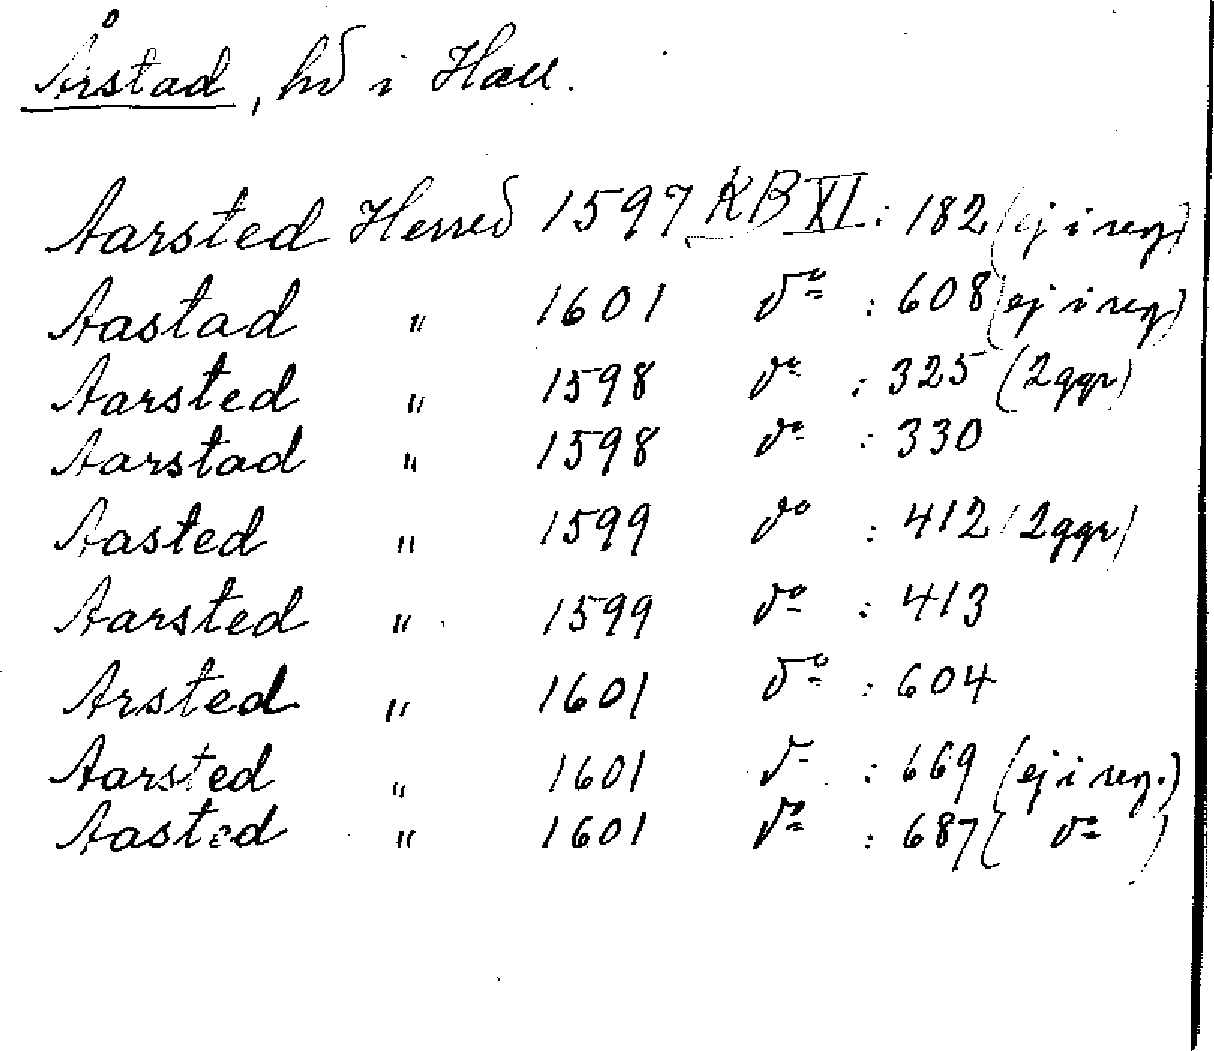 Årstad, hd i Hall.
Aarsted Herred 1597 KB XI : 182 (ej i reg)
Aastad " 1601 do : 608 (ej i reg)
Aarsted " 1598 do : 325 (2ggr)
Aarstad " 1598 do : 330
Aasted " 1599 do : 412 (2ggr)
Aarsted " 1599 do : 413
Arsted " 1601 do : 604
Aarsted " 1601 do : 669 (ej i reg.)
Aasted " 1601 do : 687 ( do )